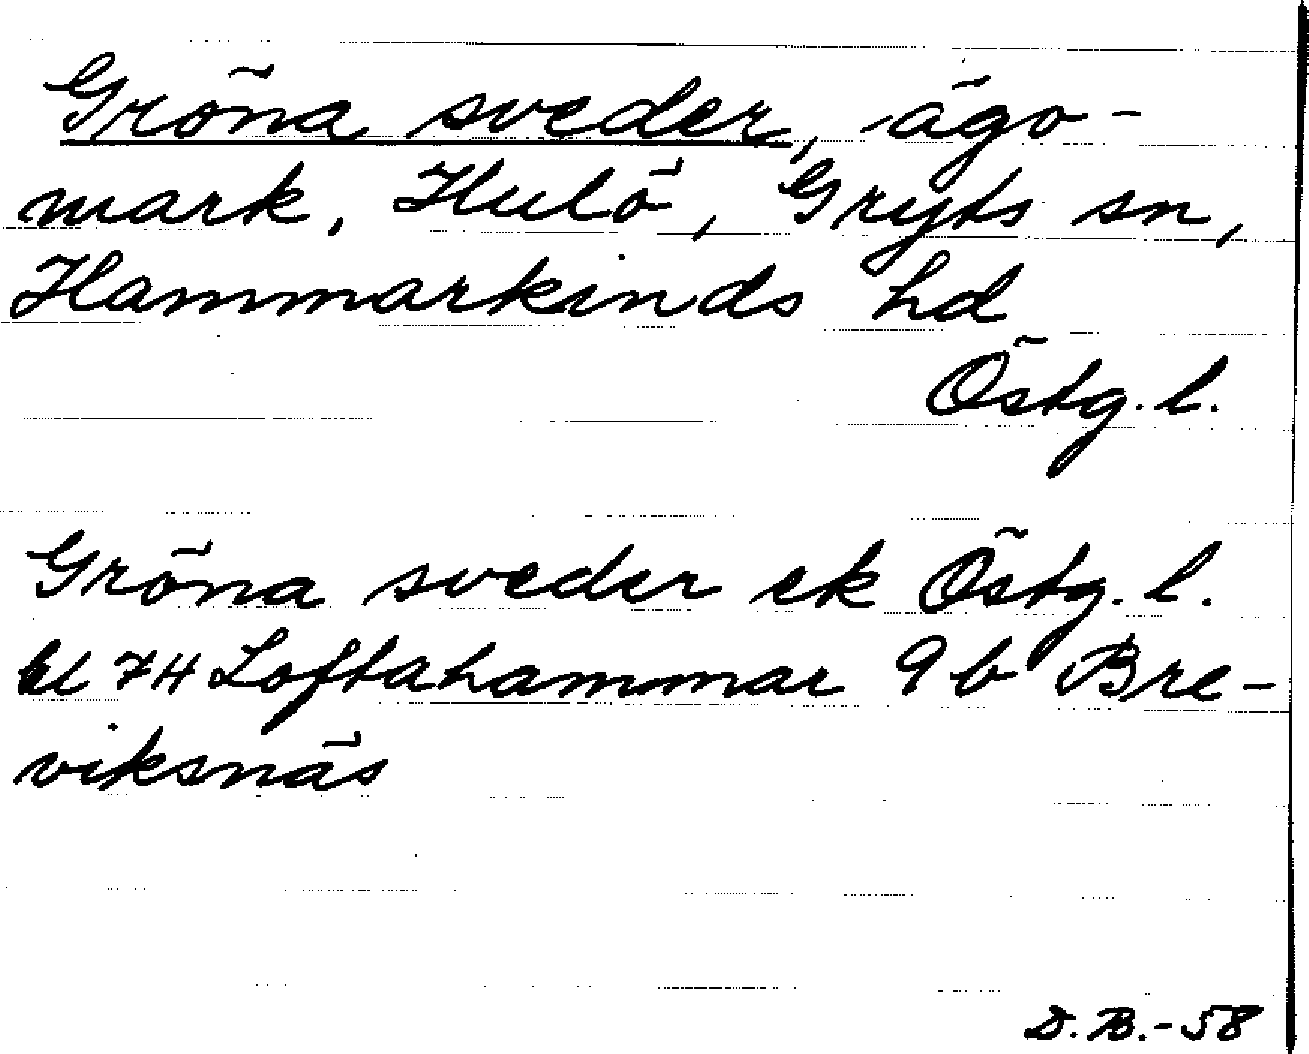 Gröna sveder, ägo-
mark, Hulö, Gryts sn,
Hammarkinds hd
Östg. l.
Gröna sveder ek Östg. l.
bl 74 Loftahammar 9 b Bre-
viksnäs
D. B. - 58